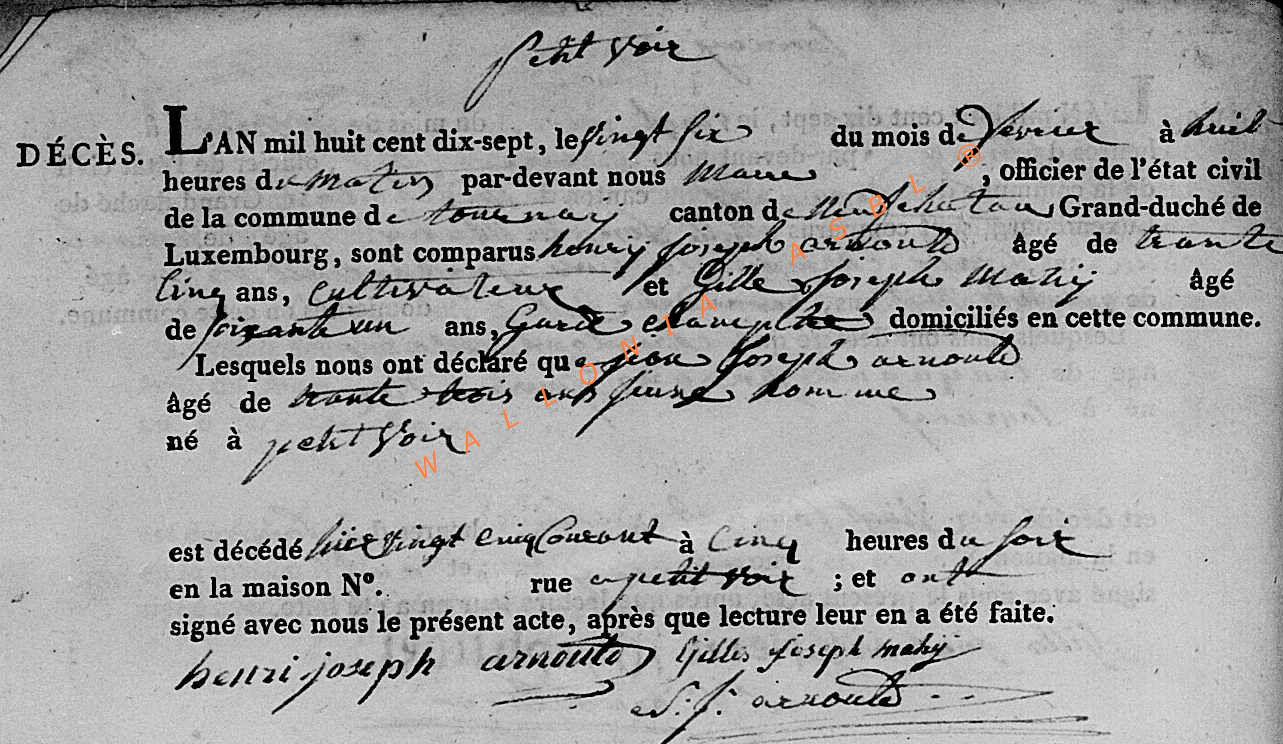 petit voir
DÉCÈS. L'AN mil huit cent dix-sept, le vingt six du mois de fevrier à huit
heures du matin par-devant nous Maire, officier de l'état civil
de la commune de tournay canton de neufchatau Grand-duché de
Luxembourg, sont comparus henry joseph arnould âgé de trante
cinq ans, cultivateur et Gille joseph Mahij âgé
de soixante un ans, Garde champetre domiciliés en cette commune.
Lesquels nous ont déclaré que jean joseph arnould
âgé de trante trois ans jeune homme
né à petit voir
est décédé hier vingt cinq Courant à cinq heures du soir
en la maison N°. rue a petit voir ; et ont
signé avec nous le présent acte, après que lecture leur en a été faite.
henri joseph arnould Gilles joseph mahij
arnould
WALLONIA ASBL @